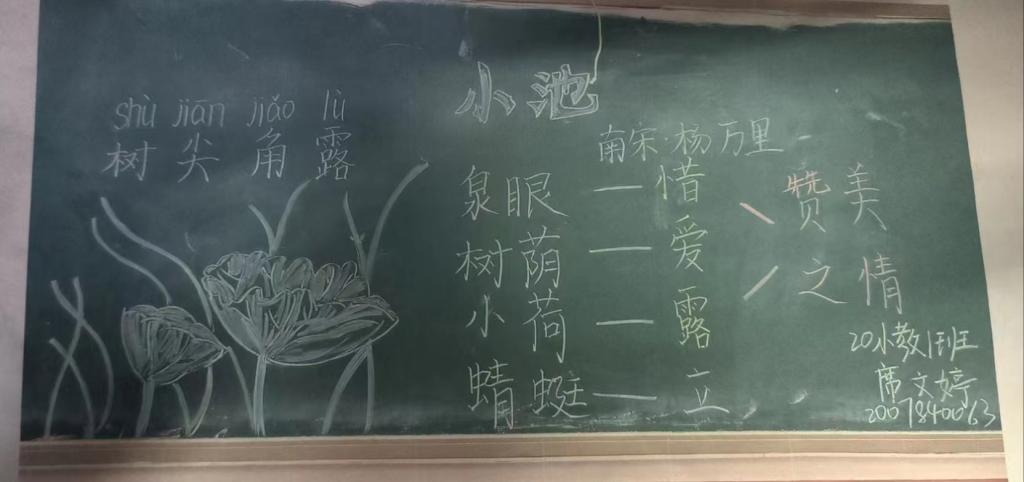 小池
南宋·杨万里
shù jiān jiǎo lù
树 尖 角 露
泉眼 — 惜
树荫 — 爱
小荷 — 露
蜻蜓 — 立
赞美
之情
20小教1班
席文婷
2007840063